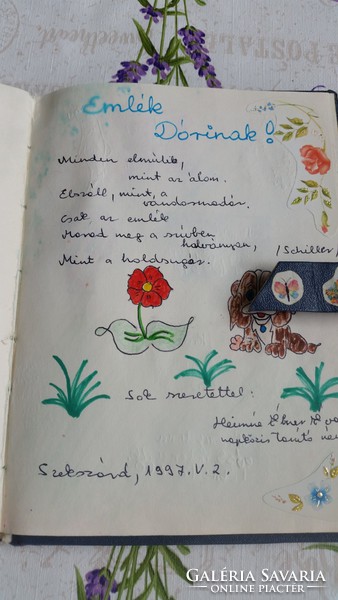 POSTAL
Sweetheart.
Emlék
Dórinak!
Minden elmúlik,
mint az álom.
Elszáll, mint a
vándormadár.
Csak az emlék
Marad meg a szívben
halványan,
/Schiller/
Mint a holdsugár.
Sok szeretettel:
Heimné
napközis tanító
Szekszárd, 1997. V. 2.
GALÉRIA SAVARIA
ONLINE PIACTÉR